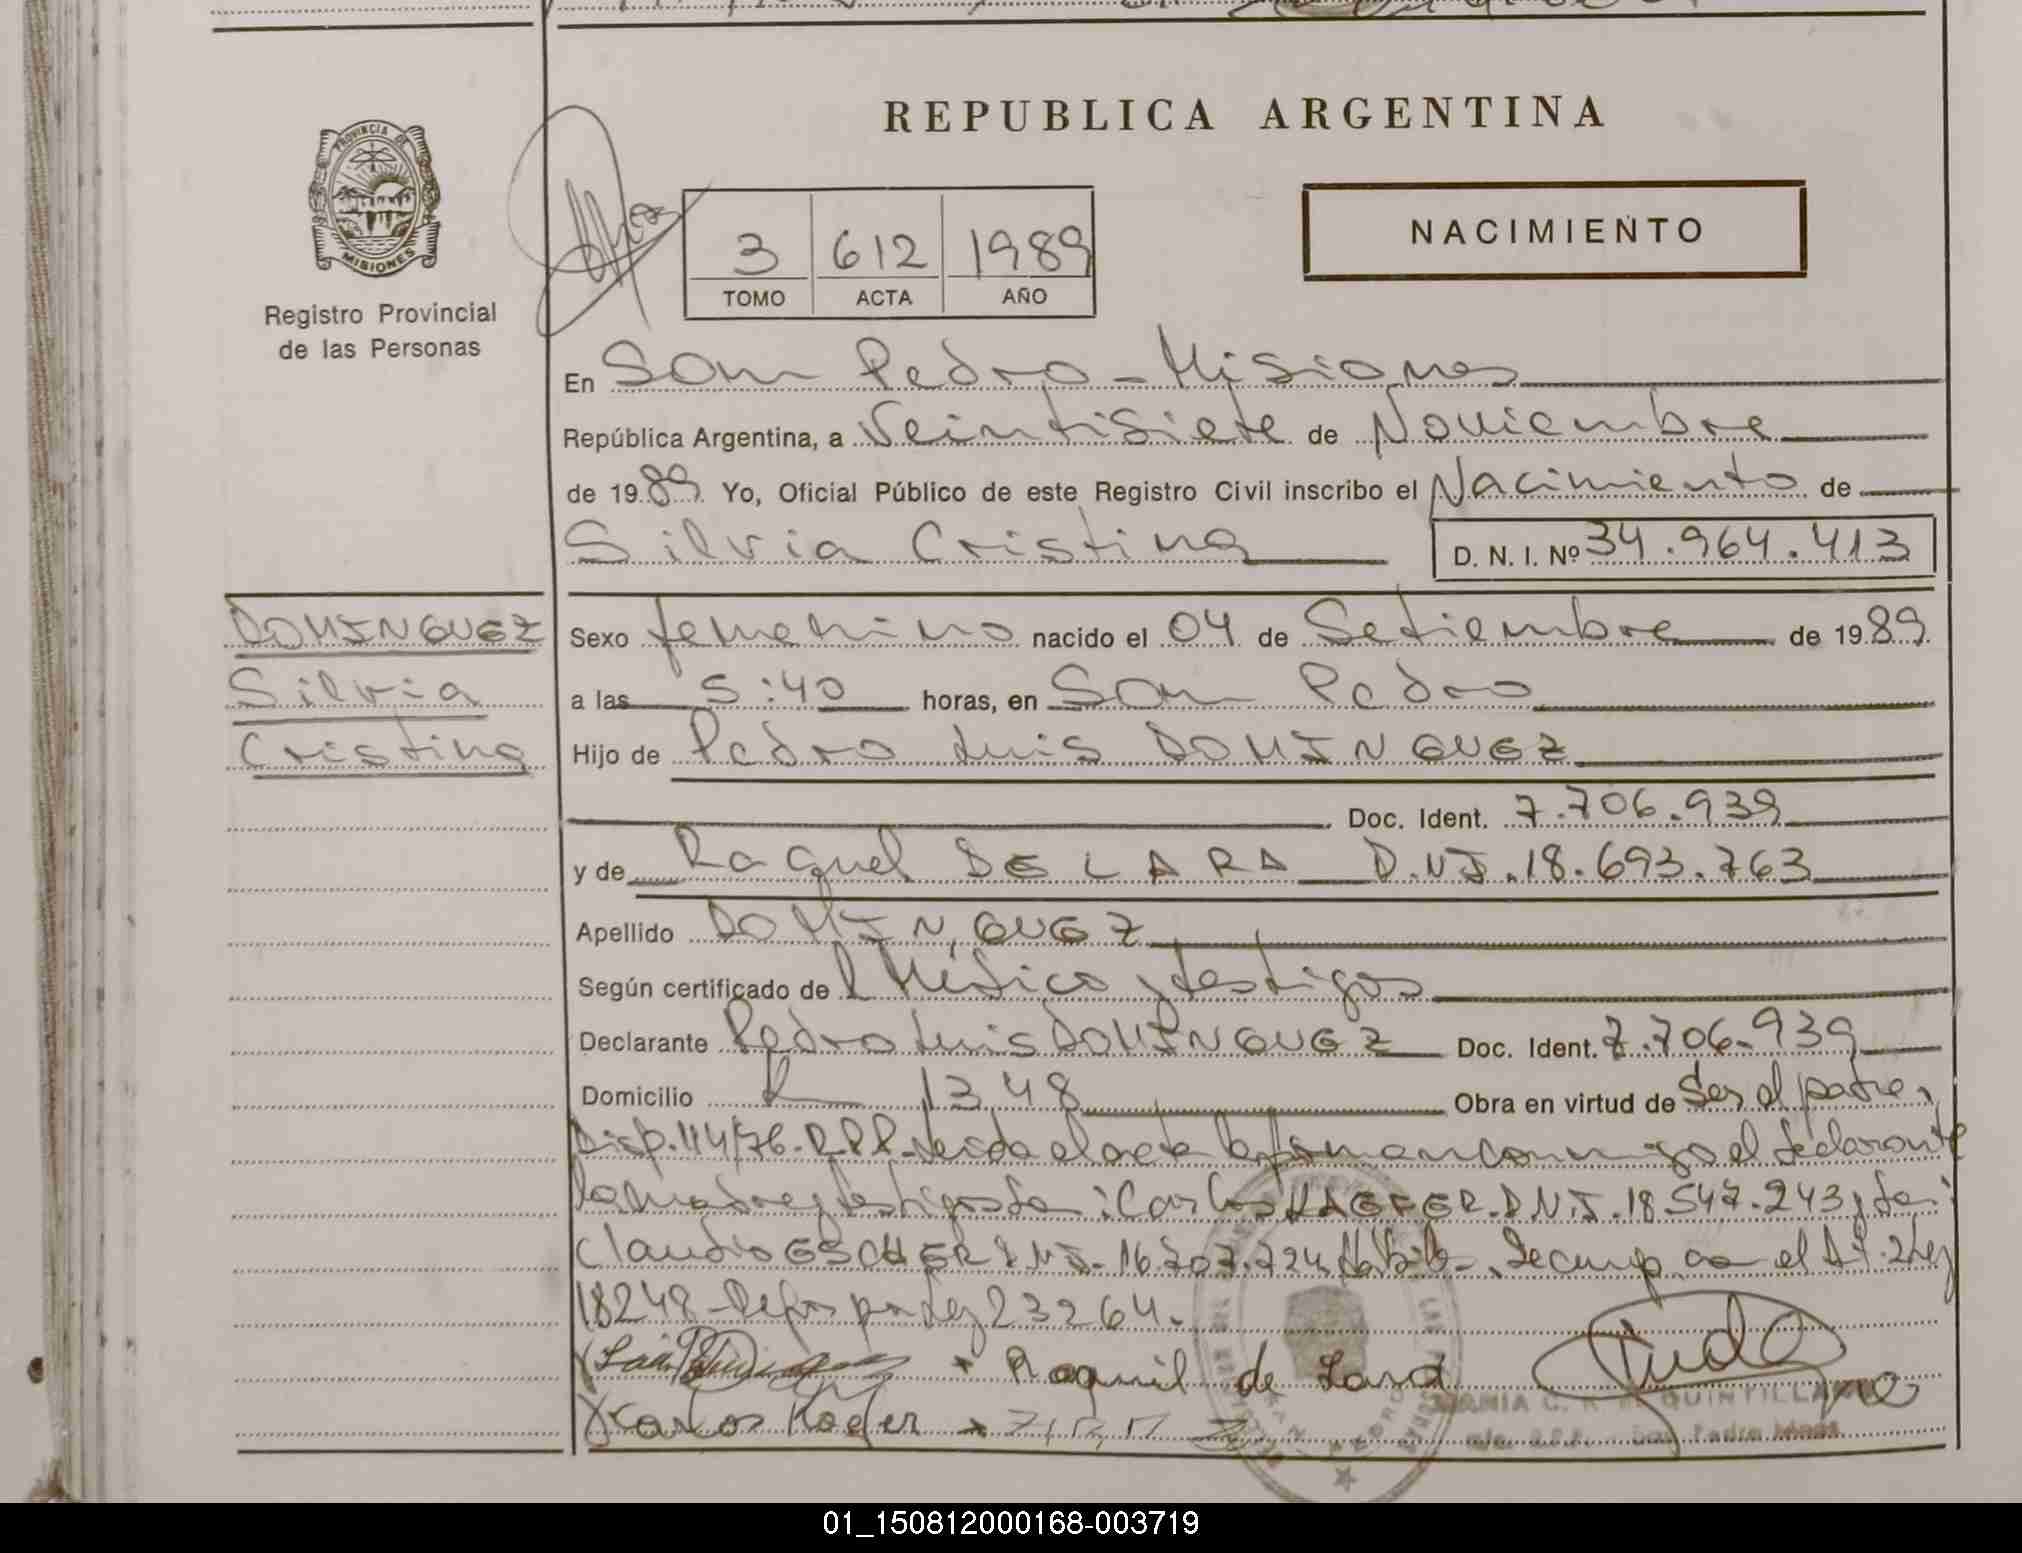 REPUBLICA ARGENTINA
PROVINCIA DE
MISIONES
Registro Provincial
de las Personas
3 612 1989
TOMO ACTA AÑO
NACIMIENTO
En San Pedro - Misiones
República Argentina, a Veintisiete de Noviembre
de 1989. Yo, Oficial Público de este Registro Civil inscribo el Nacimiento de
Silvia Cristina D. N. I. Nº 34.964.413
DOMINGUEZ
Silvia
Cristina
Sexo femenino nacido el 04 de Setiembre de 1989.
a las 5:40 horas, en San Pedro
Hijo de Pedro Luis DOMINGUEZ
Doc. Ident. 7.706.939
y de Raquel DE LARA D.N.I. 18.693.763
Apellido DOMINGUEZ
Según certificado de l Médico y testigos
Declarante Pedro Luis DOMINGUEZ Doc. Ident. 7.706.939
Domicilio 1348 Obra en virtud de Ser el padre,
Disp. 114/76. R.P.P. Leida el acta la firman conmigo el declarante
la madre y testigos de: Carlos KAEFER D.N.I. 18.547.243 y de:
Claudio ESCHER D.N.I. 16.707.724 el Art. 2 Ley
18248 - por Ley 23264.
Raquel de Lara
Carlos Kaefer
QUINTILLA
San Pedro
01_150812000168-003719